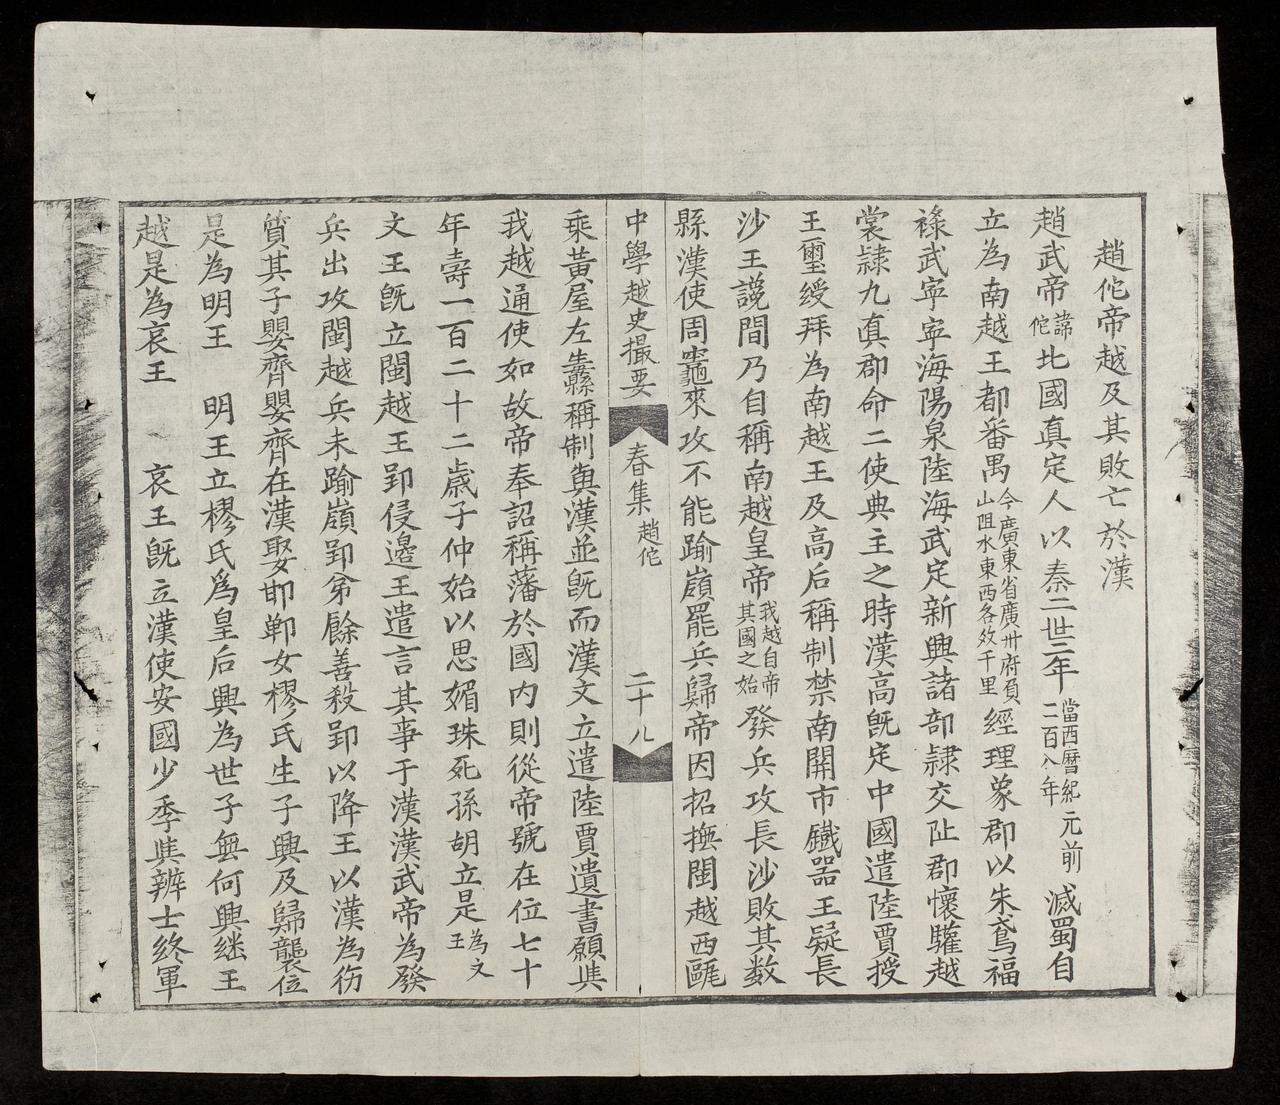 趙佗帝越及其敗亡於漢
趙武帝諱佗北國真定人以秦二世三年當西曆紀元前二百八年滅蜀自
立為南越王都番禺今廣東省廣州府負山阻水東西各效千里經理象郡以朱鳶福
祿武寧寧海陽泉陸海武定新興諸部隷交趾郡懷驩越
裳隷九真郡命二使典主之時漢高既定中國遣陸賈授
王璽綬拜為南越王及高后稱制禁南開市鐵器王疑長
沙王讒間乃自稱南越皇帝我越自帝其國之始發兵攻長沙敗其数
縣漢使周竈來攻不能踰嶺罷兵歸帝因招撫閩越西甌
中學越史撮要 春集 趙佗 二十八
乘黃屋左纛稱制與漢並既而漢文立遣陸賈遺書願與
我越通使如故帝奉詔稱藩於國内則從帝號在位七十
年壽一百二十二歲子仲始以思媚珠死孫胡立是為文王
文王既立閩越王郢侵邊王遣言其事于漢漢武帝為發
兵出攻閩越兵未踰嶺郢弟餘善殺郢以降王以漢為伤
質其子嬰齊嬰齊在漢娶邯鄲女樛氏生子興及歸襲位
是為明王 明王立樛氏爲皇后興為世子無何興継王
越是為哀王 哀王既立漢使安國少季與辨士終軍